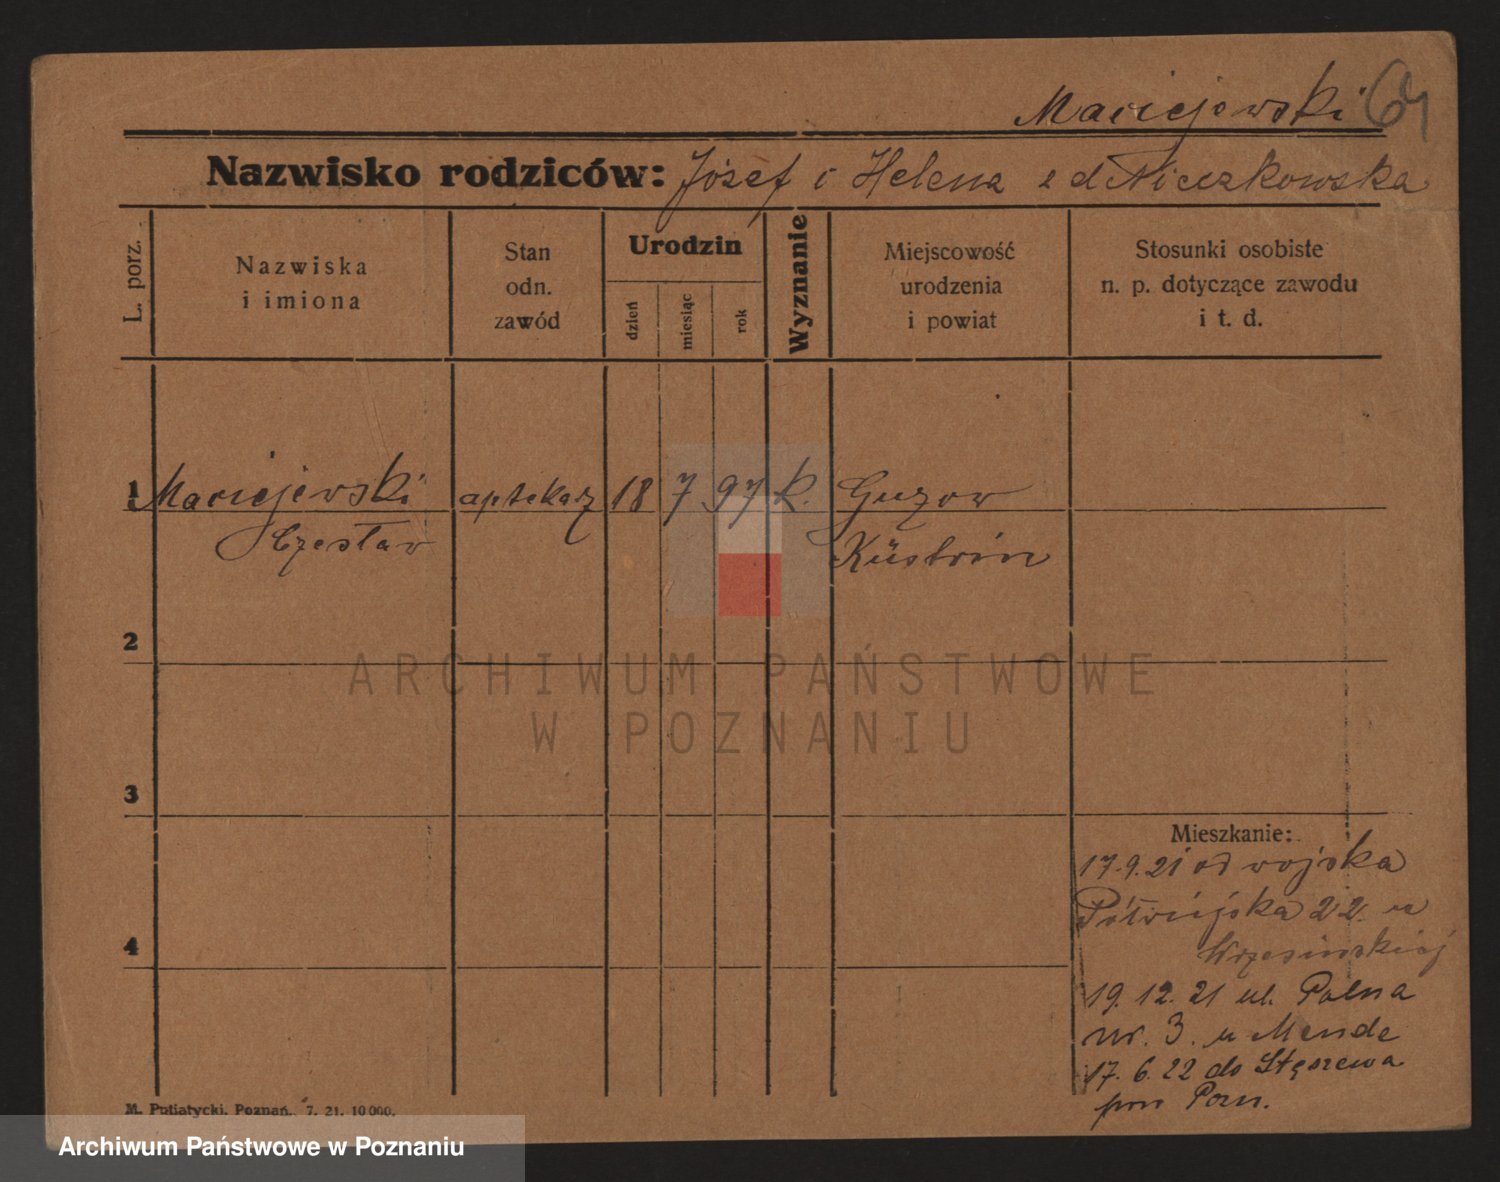 Maciejewski
Nazwisko rodziców: Józef i Helena z d Niczkowska
L. porz.
Nazwiska i imiona
Stan odn. zawód
Urodzin
dzień
miesiąc
rok
Wyznanie
Miejscowość urodzenia i powiat
Stosunki osobiste n. p. dotyczące zawodu i t. d.
1 Maciejewski aptekarz 18 7 97 k. Guzow
Czesław Küstrin
2
ARCHIWUM PAŃSTWOWE
W POZNANIU
3
Mieszkanie:
17.9.21 od wojska
Półwiejska 22. u
Wrzesińskiej
4
19.12.21 ul. Polna
nr. 3. u Mende
17.6.22 do Stęszewa
pow Pozn.
M. Putiatycki, Poznań. 7. 21. 10 000.
Archiwum Państwowe w Poznaniu